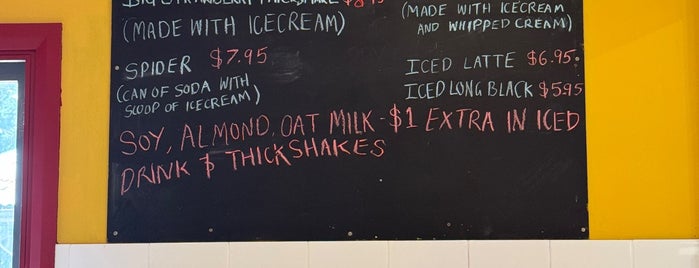 (MADE WITH ICECREAM)
SPIDER $7.95
(CAN OF SODA WITH
SCOOP OF ICECREAM)
(MADE WITH ICECREAM
AND WHIPPED CREAM)
ICED LATTE $6.95
ICED LONG BLACK $5.95
SOY, ALMOND, OAT MILK - $1 EXTRA IN ICED
DRINK & THICKSHAKES